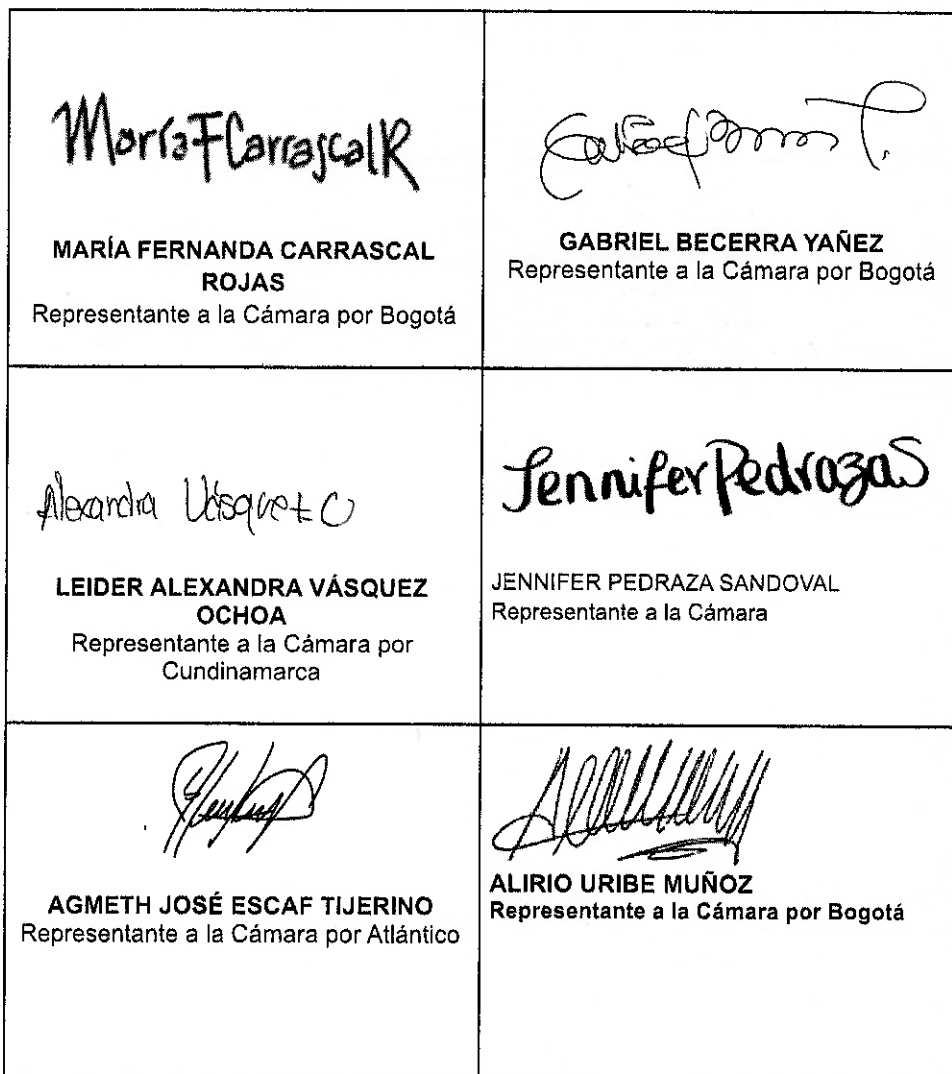 MaríaFCarrascalR
MARÍA FERNANDA CARRASCAL
ROJAS
Representante a la Cámara por Bogotá
GABRIEL BECERRA YAÑEZ
Representante a la Cámara por Bogotá
Alexandra Vásquez O
LEIDER ALEXANDRA VÁSQUEZ
OCHOA
Representante a la Cámara por
Cundinamarca
Jennifer PedrazaS
JENNIFER PEDRAZA SANDOVAL
Representante a la Cámara
AGMETH JOSÉ ESCAF TIJERINO
Representante a la Cámara por Atlántico
ALIRIO URIBE MUÑOZ
Representante a la Cámara por Bogotá